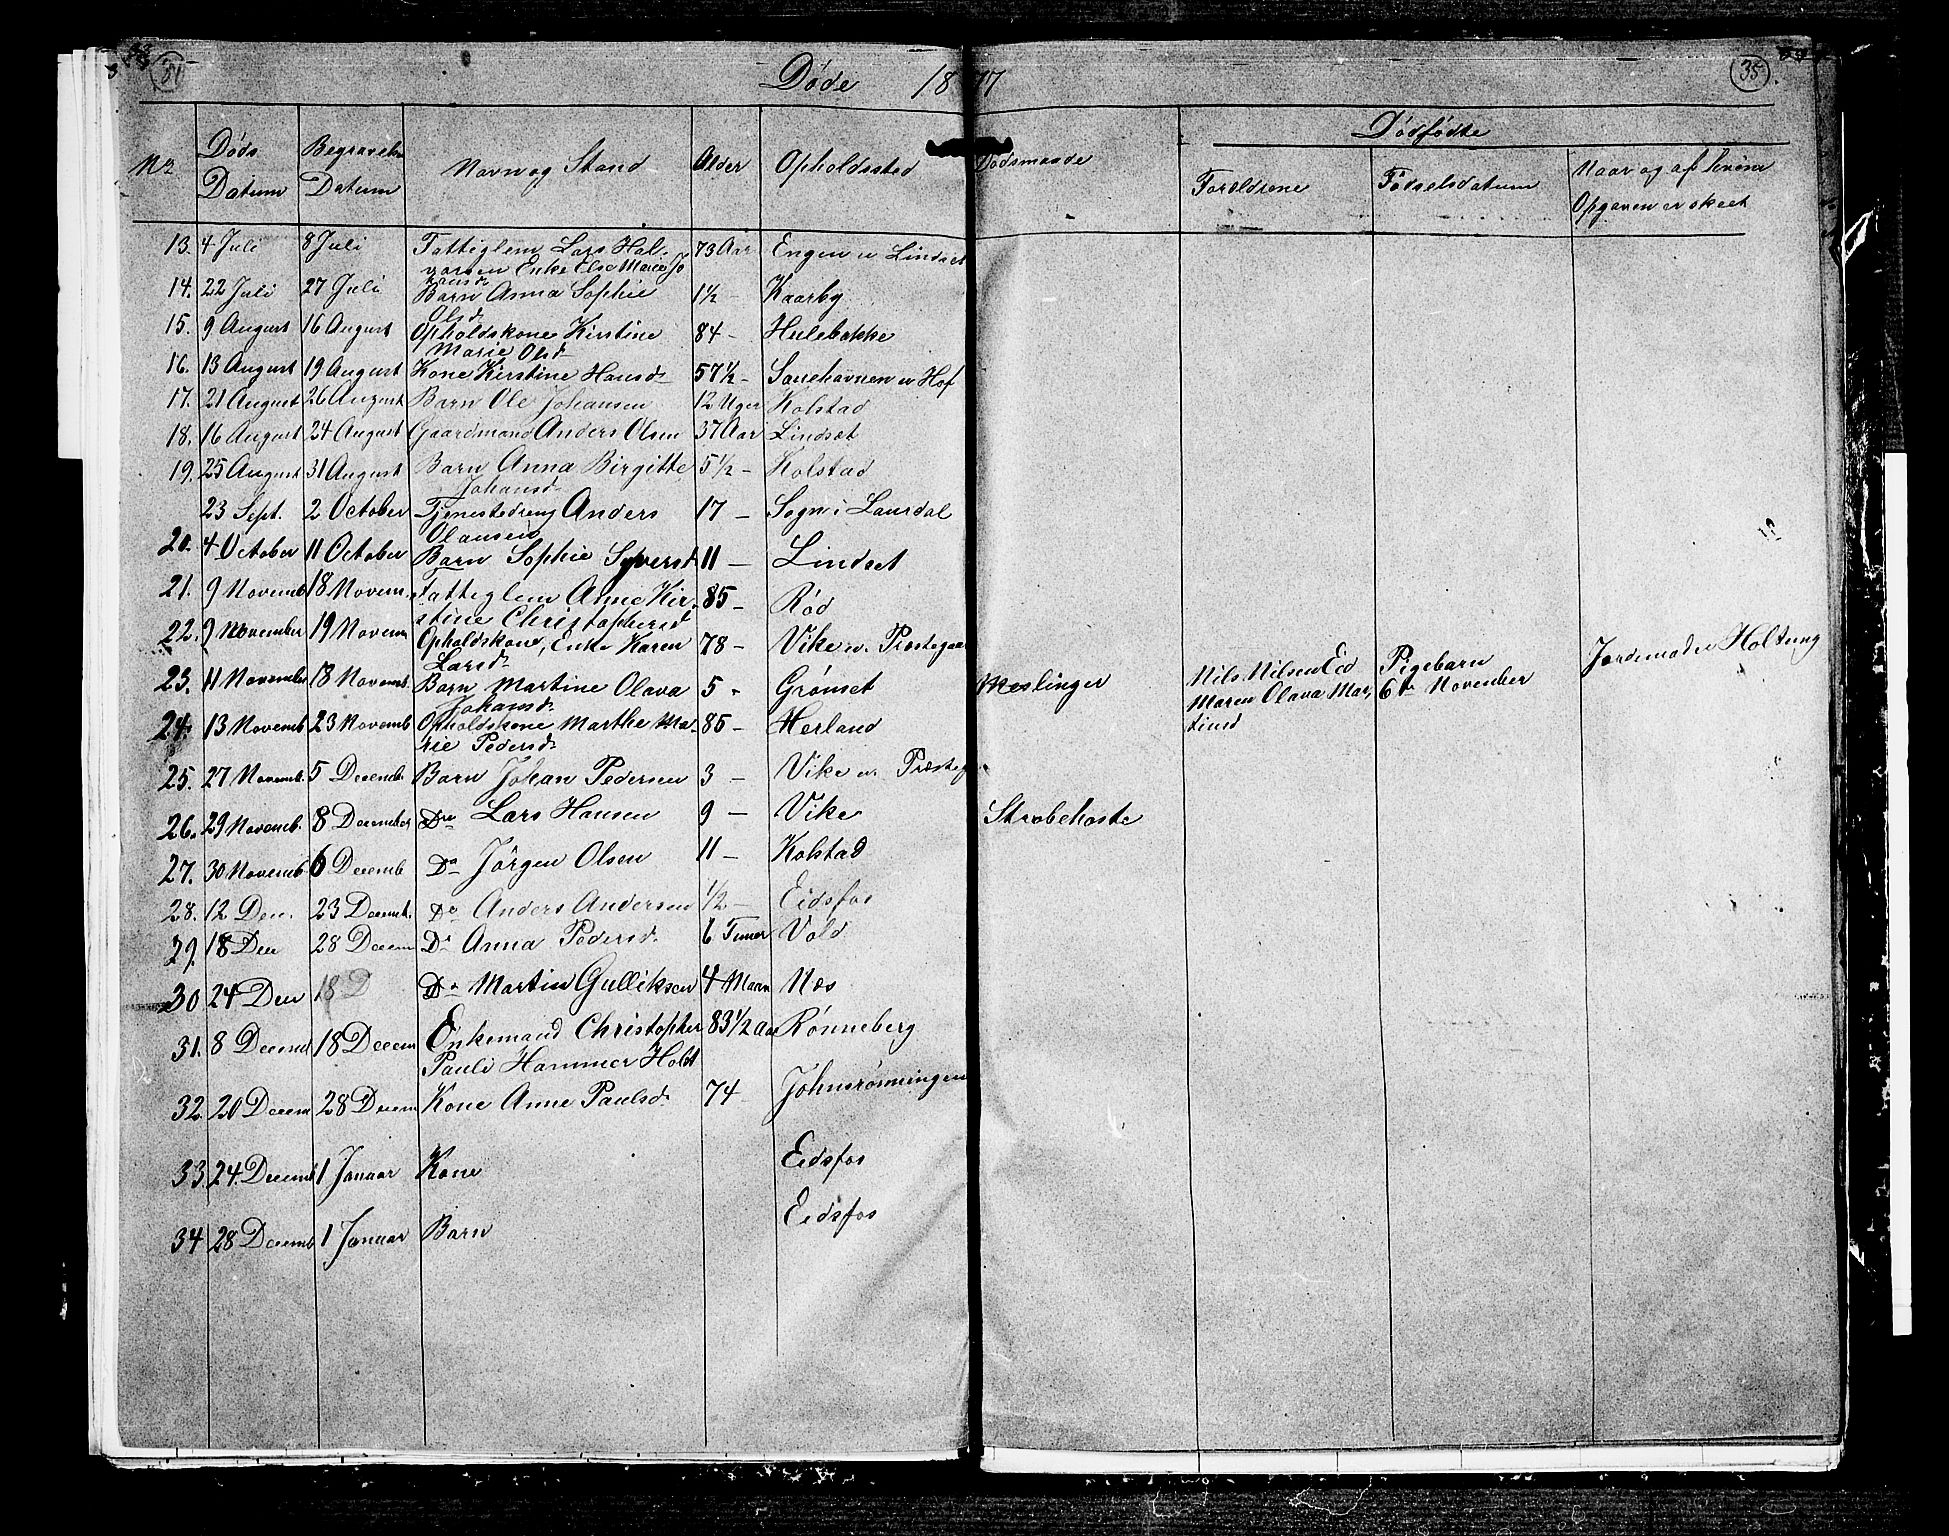 34 Døde 1877 35
No Døds Datum Begravels Datum Navn og Stand Alder Opholdssted Dødsmaade Dødfødte
Forældrene Fødselsdatum Naar og af hvem Opgaven er skeet
13. 4 Juli 8 Juli Fattiglem Lars Hal- 73 Aar Engen u Lindset
vorsen Enke Else Marie Jo
hansd
14. 22 Juli 27 Juli Barn Anna Sophie 1½ - Kaarby
Olsd
15. 9 August 16 August Opholdskone Kirstine 84 - Hulebakke
Marie Olsd
16. 13 August 19 August Kone Kirstine Hansd 57½ - Sauehavnen u Hof
17. 21 August 26 August Barn Ole Johansen 12 Uger Kolstad
18. 16 August 24 August Gaardmand Anders Olsen 37 Aar Lindset
19. 25 August 31 August Barn Anna Birgitte 5½ - Kolstad
Johansd
23 Sept. 2 October Tjenestedreng Anders 17 - Sogn i Laurdal
Olausen
20. 4 October 11 October Barn Sophie Syversd 11 - Lindset
21. 9 Novemb 18 Novem. Fattiglem Anne Kir- 85 - Rød
stine Christophersd
22. 9 November 19 Novem Opholdskone, Enke Karen 78 - Vike u. Præstegaa
Larsd
23. 11 November 18 Novemb. Barn Martine Olava 5 - Grønset Meslinger Nils Nilsen Eid Pigebarn Jordemoder Holtung
Johansd Maren Olava Mar, 6te November
tinsd
24. 13 Novemb 23 Novemb Opholdskone Marthe Ma- 85 - Herland
rie Pedersd
25. 27 Novemb. 5 Decemb. Barn Johan Pedersen 3 - Vike u. Præsteg
26. 29 Novemb. 8 December Do Lars Hansen 9 - Vike Strubehoste
27. 30 Novemb 6 Decemb Do Jörgen Olsen 11 - Kolstad
28. 12 Dec. 23 Decemb. Do Anders Andersen ½ - Eidsfos
29. 18 Dec 28 Decem Do Anna Pedersd. 6 Timer Vold
30 24 Decr 18 D Do Martin Gulliksen 4 Maan Næs
31. 8 Decemb 18 Decem Enkemand Christopher 83½ Aar Rønneberg
Pauli Hammer Holst
32. 20 Decem 28 Decem Kone Anne Paulsd. 74 - Johnsrønningen
33. 24. Decemb 1 Januar Kone Eidsfos
34 28 Decemb 1 Januar Barn Eidsfos